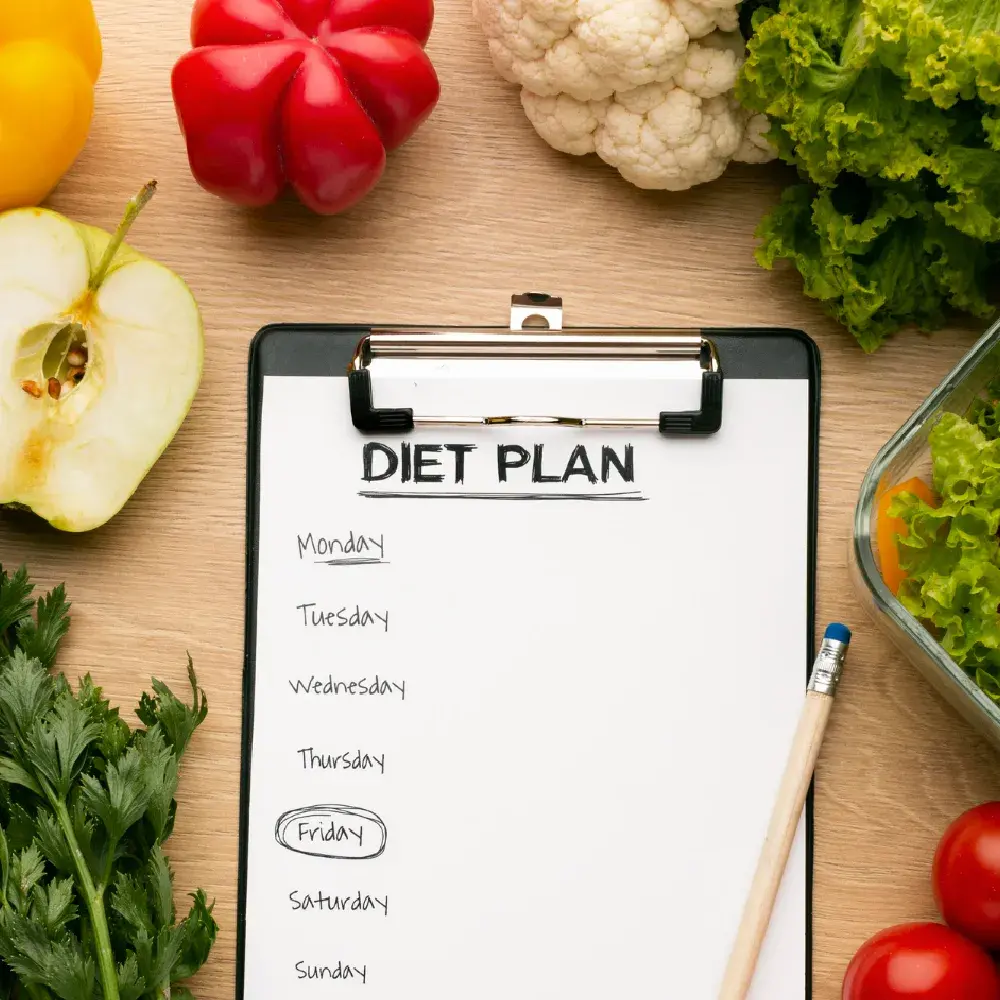 DIET PLAN
Monday
Tuesday
Wednesday
Thursday
Friday
Saturday
Sunday